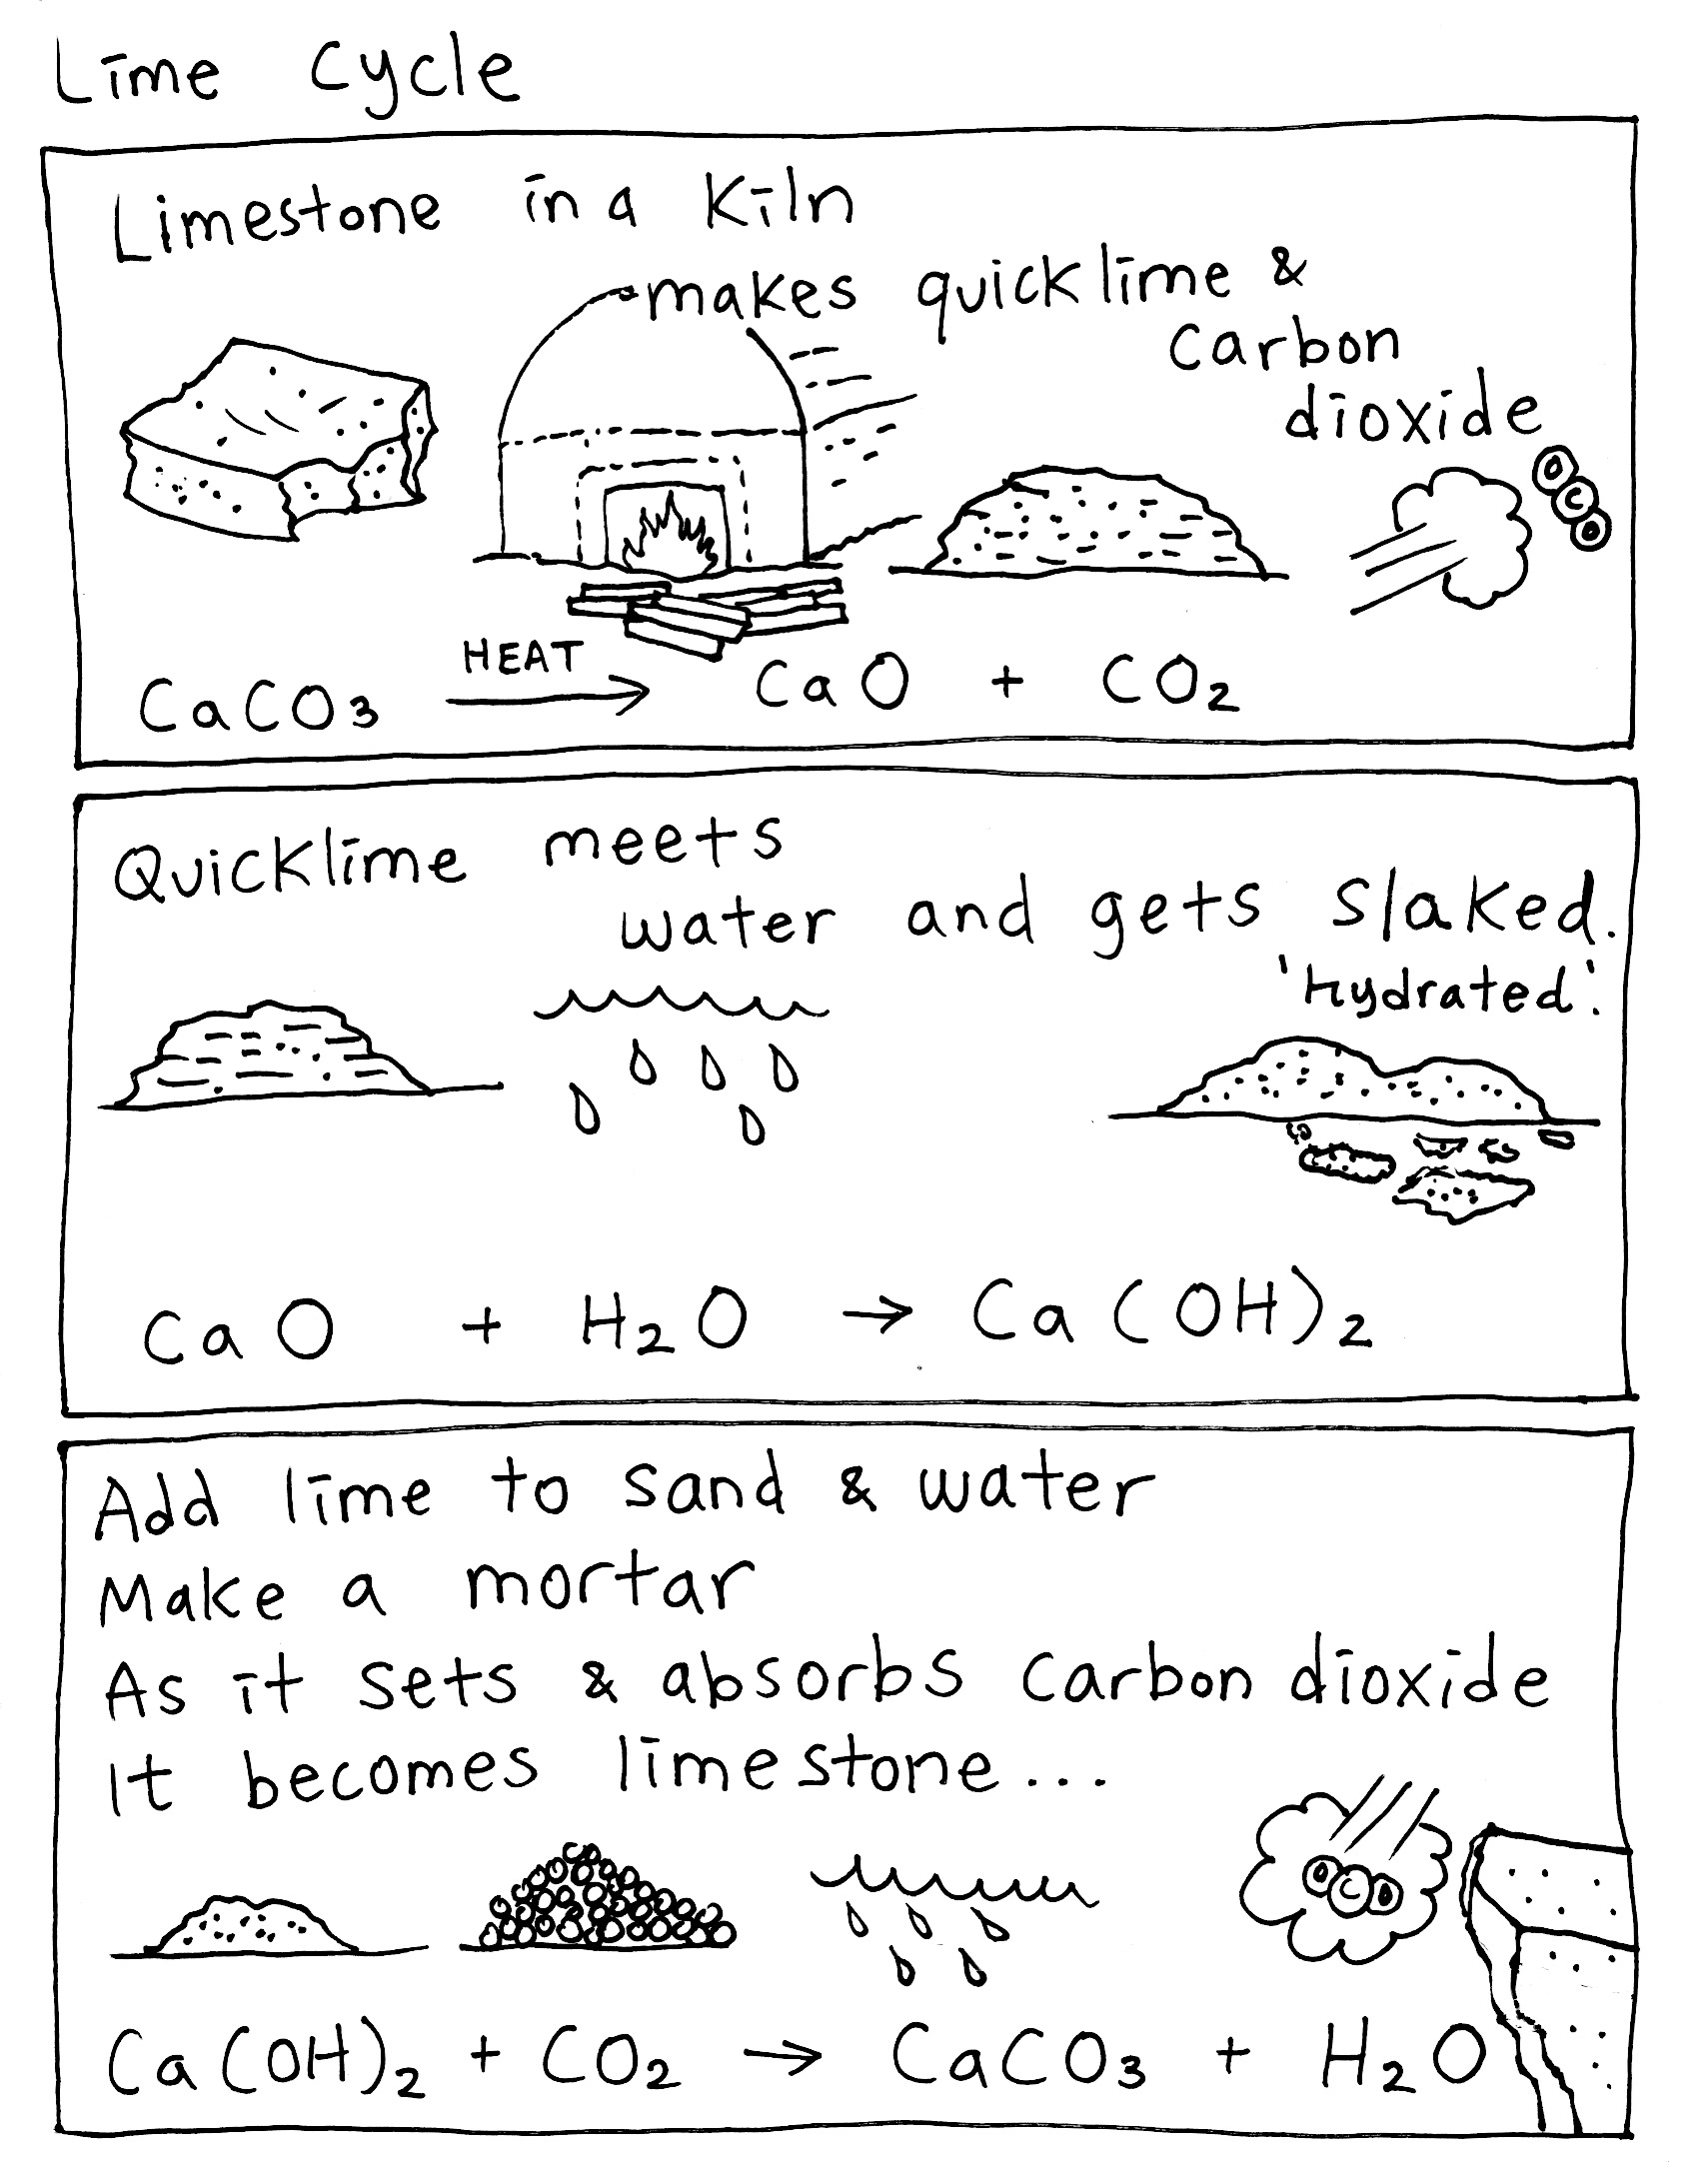 Lime Cycle
Limestone in a Kiln
makes quicklime &
carbon
dioxide
O
C
O
HEAT
CaCO3 → CaO + CO2
Quicklime meets
water and gets slaked.
'hydrated'.
CaO + H2O → Ca(OH)2
Add lime to sand & water
Make a mortar
As it sets & absorbs carbon dioxide
It becomes limestone...
OCO
Ca(OH)2 + CO2 → CaCO3 + H2O